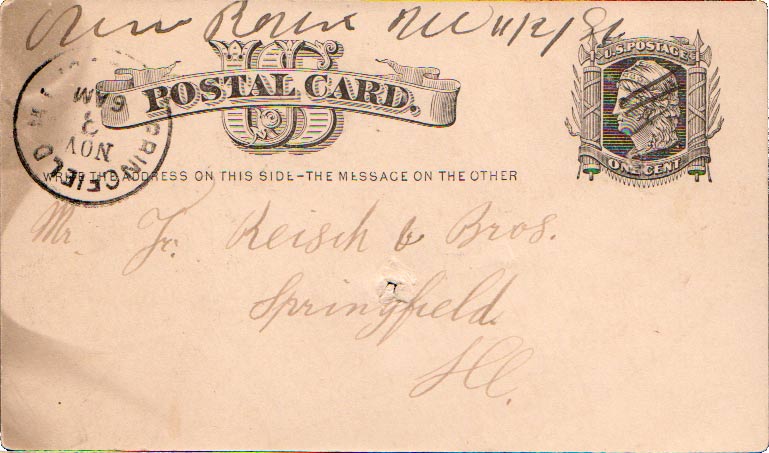 Ill 11/2/86
U.S. POSTAGE
US
POSTAL CARD.
SPRINGFIELD
NOV
3
6 AM
ONE CENT
WRITE THE ADDRESS ON THIS SIDE-THE MESSAGE ON THE OTHER
Mr. Fr. Reisch & Bros.
Springfield
Ill.